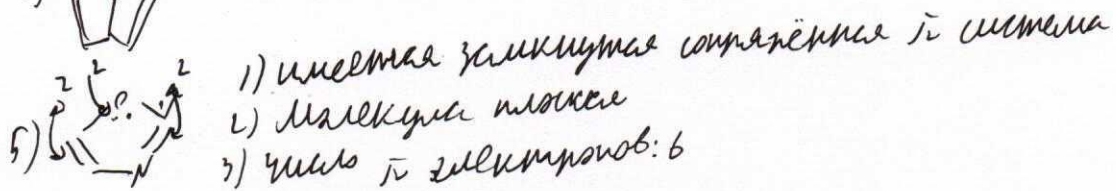 1) имеетая замкнутая сопряжённая π система
5) 2 2 2 O N 2) Молекула плоская
3) число π электронов: 6